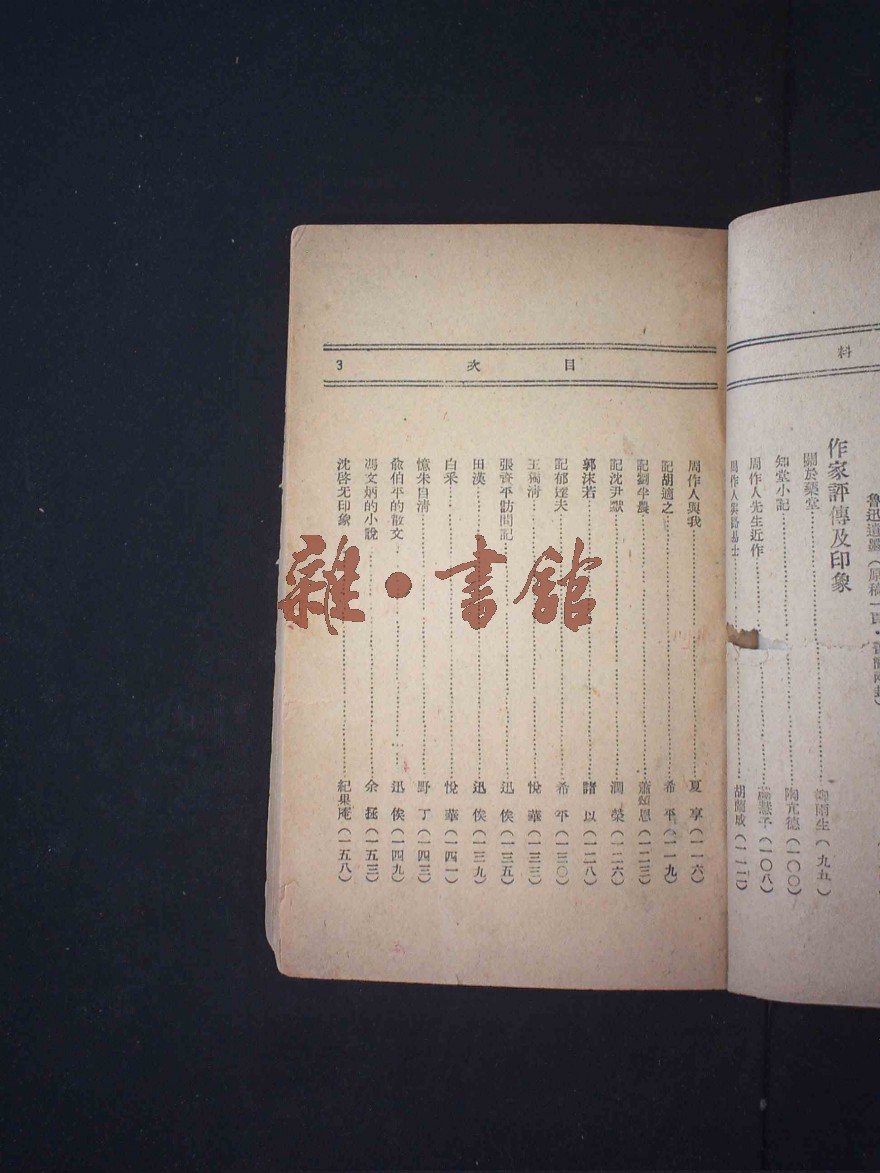 料
魯迅遺墨（原稿一頁・書簡兩封）
作家評傳及印象
關於藥堂……柳雨生（九五）
知堂小記……陶亢德（一〇〇）
周作人先生近作……慧子（一〇八）
周作人與路易士……胡蘭成（一一二）
目次 3
周作人與我……夏享（一一六）
記胡適之……希平（一一九）
記劉半農……蕭頌恩（一二三）
記沈尹默……潤榮（一二六）
郭沫若……諸以（一二八）
記郁達夫……希平（一三〇）
王獨清……悅華（一三三）
張資平訪問記……迅俟（一三五）
田漢……迅俟（一三九）
白采……悅華（一四一）
憶朱自清……野丁（一四三）
俞伯平的散文……迅俟（一四九）
馮文炳的小說……余拯（一五三）
沈啓无印象……紀果庵（一五八）
雜・書館